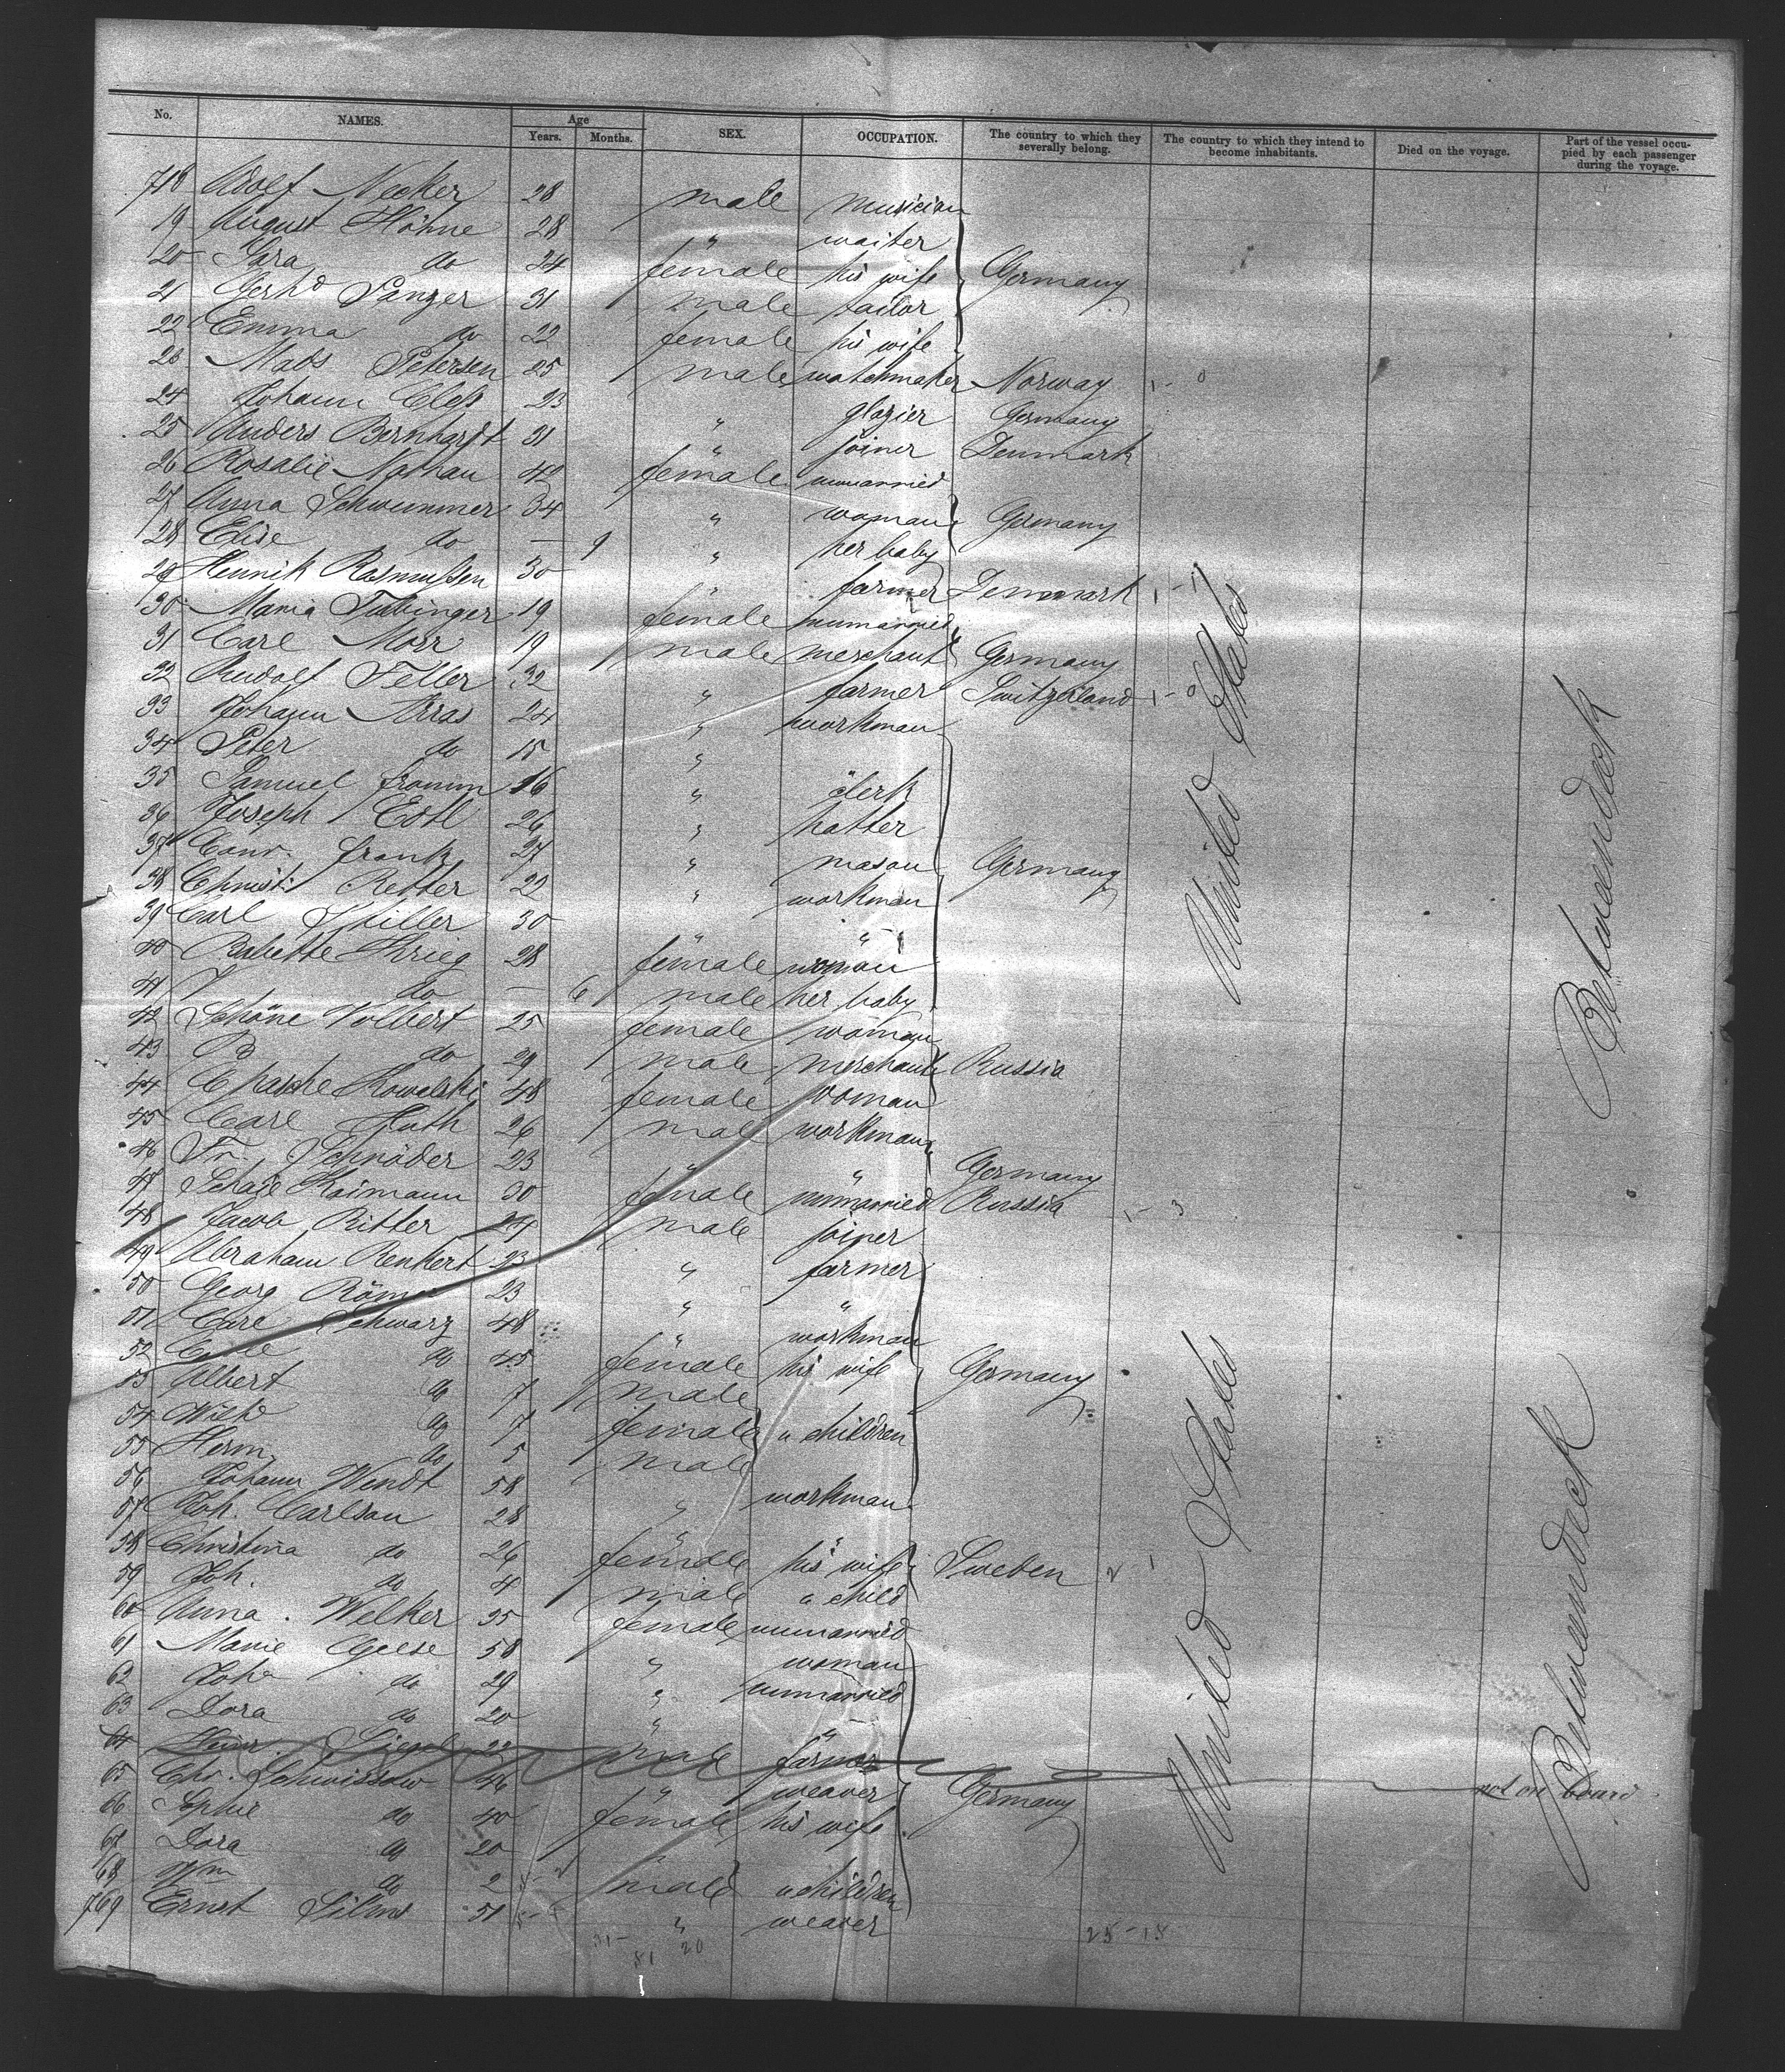 No. NAMES. Age Years. Months. SEX. OCCUPATION. The country to which they severally belong. The country to which they intend to become inhabitants. Died on the voyage. Part of the vessel occupied by each passenger during the voyage.
718 Adolf Necker 28 male musician
19 August Höhne 28 " waiter
20 do 24 female his wife Germany
21 Gerhd Sanger 31 male tailor
22 Emma do 22 female his wife
23 Mads Petersen 25 male watchmaker Norway
24 Johann Cleß 23 " glazier Germany
25 Anders Bernhardt 31 " joiner Denmark
26 Rosalie Nathan 42 female unmarried
27 Anna Schwemmer 34 " woman Germany
28 Elise do — 9 " her baby
29 Henrik Rasmußen 30 " farmer Denmark
30 Maria Tubinger 19 female unmarried
31 Carl Morr 19 male merchant Germany
32 Rudolf Feller 32 " farmer Switzerland
33 Johann Arras 24 " workman
34 Peter do 15 "
35 Samuel Fromm 16 " clerk
36 Joseph Edtl 26 " hatter
37 Conr. Frank 27 " mason Germany
38 Christ. Retter 22 " workman
39 Carl 30 " "
40 Babette Krieg 28 female woman
41 do — 6 male her baby
42 Schöne Volbert 25 female woman
43 B do 29 male merchant Russia
44 Kowalski 48 female woman
45 Carl Huth 26 male workman
46 Fr. Schröder 23 " " Germany
47 Kaimann 30 female unmarried Russia
48 Jacob Ritter 24 male joiner
49 Abraham Renkert 23 " farmer
50 Georg Römer 23 " "
51 Carl Schwarz 48 " workman
52 do 45 female his wife Germany
53 Albert do 7 male
54 Wilh do 7 female " children
55 Herm do 5 male
56 Johann Wendt 58 " workman
57 Joh. Carlson 28 " "
58 Christina do 26 female his wife Sweden
59 Joh. do 4 male " child
60 Anna Welker 25 female unmarried
61 Marie Geese 58 " woman
62 Joha do 29 " unmarried
63 Dora do 20 " "
64 Heinr. Siegel 22 male farmer not on board
65 Chr. Schwissow 46 " weaver Germany
66 Sophie do 40 female his wife
67 Dora do 20 "
68 Wm do 2 male " children
769 Ernst Silms 51 " weaver
United States
United States
Betweendeck
Betweendeck
81 20